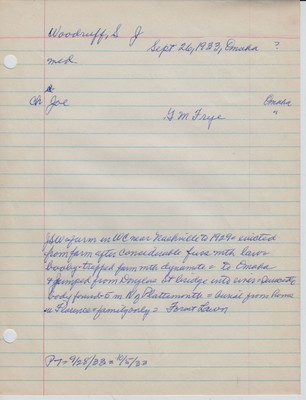 Woodruff, S J
Sept 26, 1933, Omaha ?
med
Ch Joe Omaha
G M Frye "
JSW farm on WC near Nashville to 1929 + evicted
from farm after considerable fuss with law or
booby-trapped farm with dynamite + to Omaha
+ jumped from Douglas St bridge into river + suicide
body found 5 mi N of Plattsmouth + burial from home
+ family only = Forest Lawn
P-T = 9/28/33 = 10/5/33